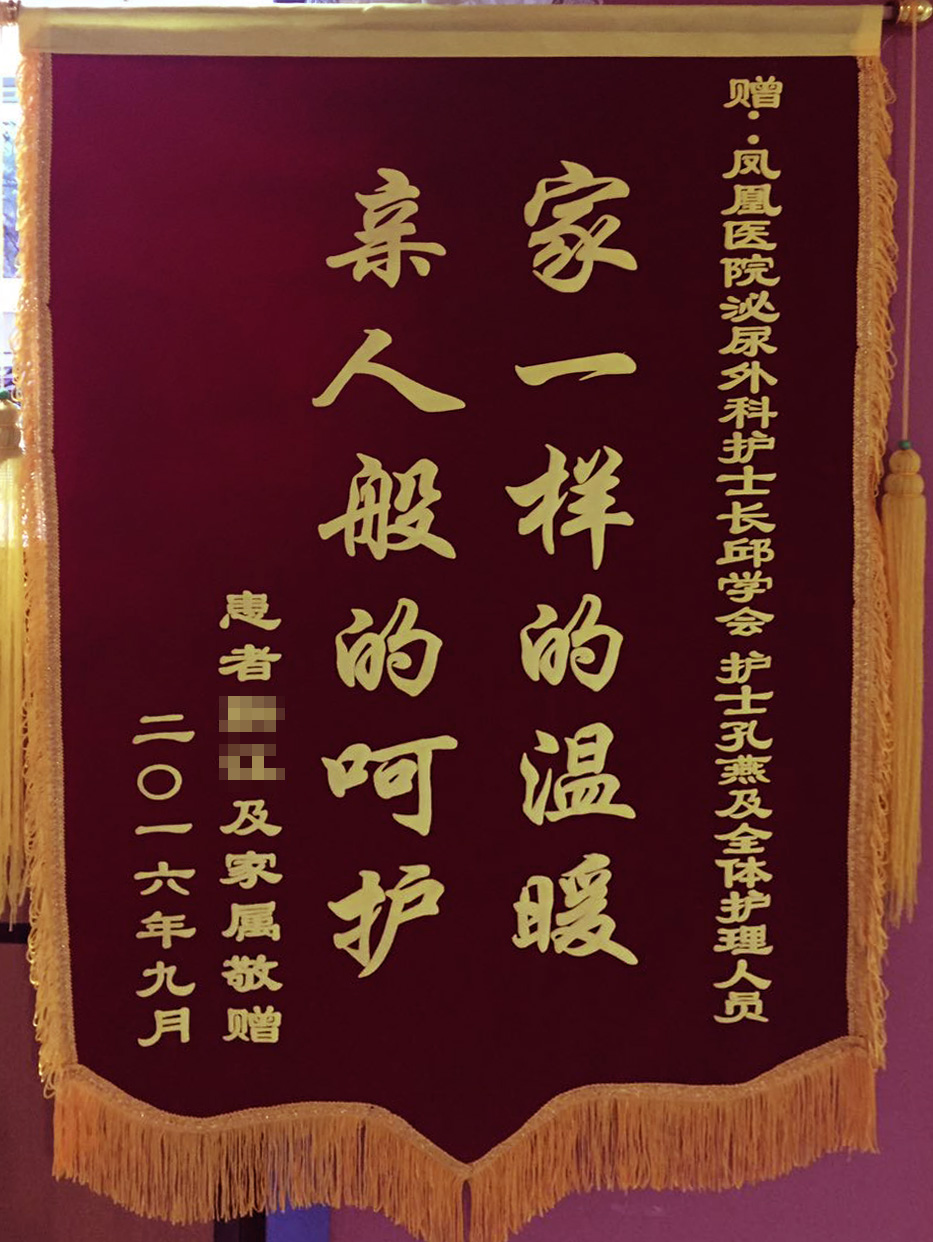 赠:凤凰医院泌尿外科护士长邱学会 护士孔燕及全体护理人员
家一样的温暖
亲人般的呵护
患者 及家属敬赠
二〇一六年九月